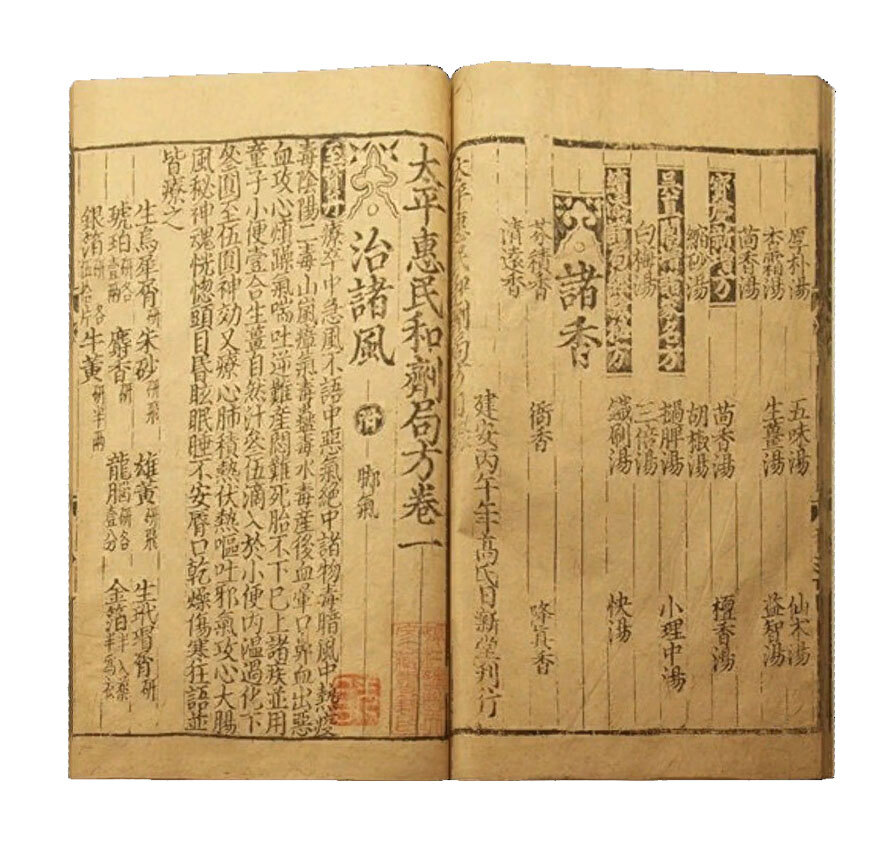 厚朴湯 五味湯 仙朮湯
杏霜湯 生薑湯 益智湯
茴香湯
寶慶新增方 茴香湯 檀香湯
縮砂湯 胡椒湯
吳直閣增諸家名方 撝脾湯 小理中湯
白梅湯 三倍湯
續添諸局經驗秘方 鐵刷湯 快湯
諸香
芬積香 衙香 降真香
清遠香
建安丙午年高氏日新堂刊行
太平惠民和劑局方目錄
太平惠民和劑局方卷一
治諸風 附 腳氣
至寶丹 療卒中急風不語中惡氣絕中諸物毒暗風中熱疫
毒陰陽二毒山嵐瘴氣毒蠱毒水毒產後血暈口鼻血出惡
血攻心煩躁氣喘吐逆難產悶亂死胎不下已上諸疾並用
童子小便壹合生薑自然汁叄伍滴入於小便內溫過化下
叄圓至伍圓神効又療心肺積熱伏熱嘔吐邪氣攻心大腸
風秘神魂恍惚頭目昏眩眠睡不安唇口乾燥傷寒狂語並
皆療之
生烏犀屑 朱砂研飛 雄黃研飛 生玳瑁屑研
琥珀研各壹兩 麝香研 龍腦研各壹分 金箔半入藥半為衣
銀箔研各伍拾片 牛黃研半兩